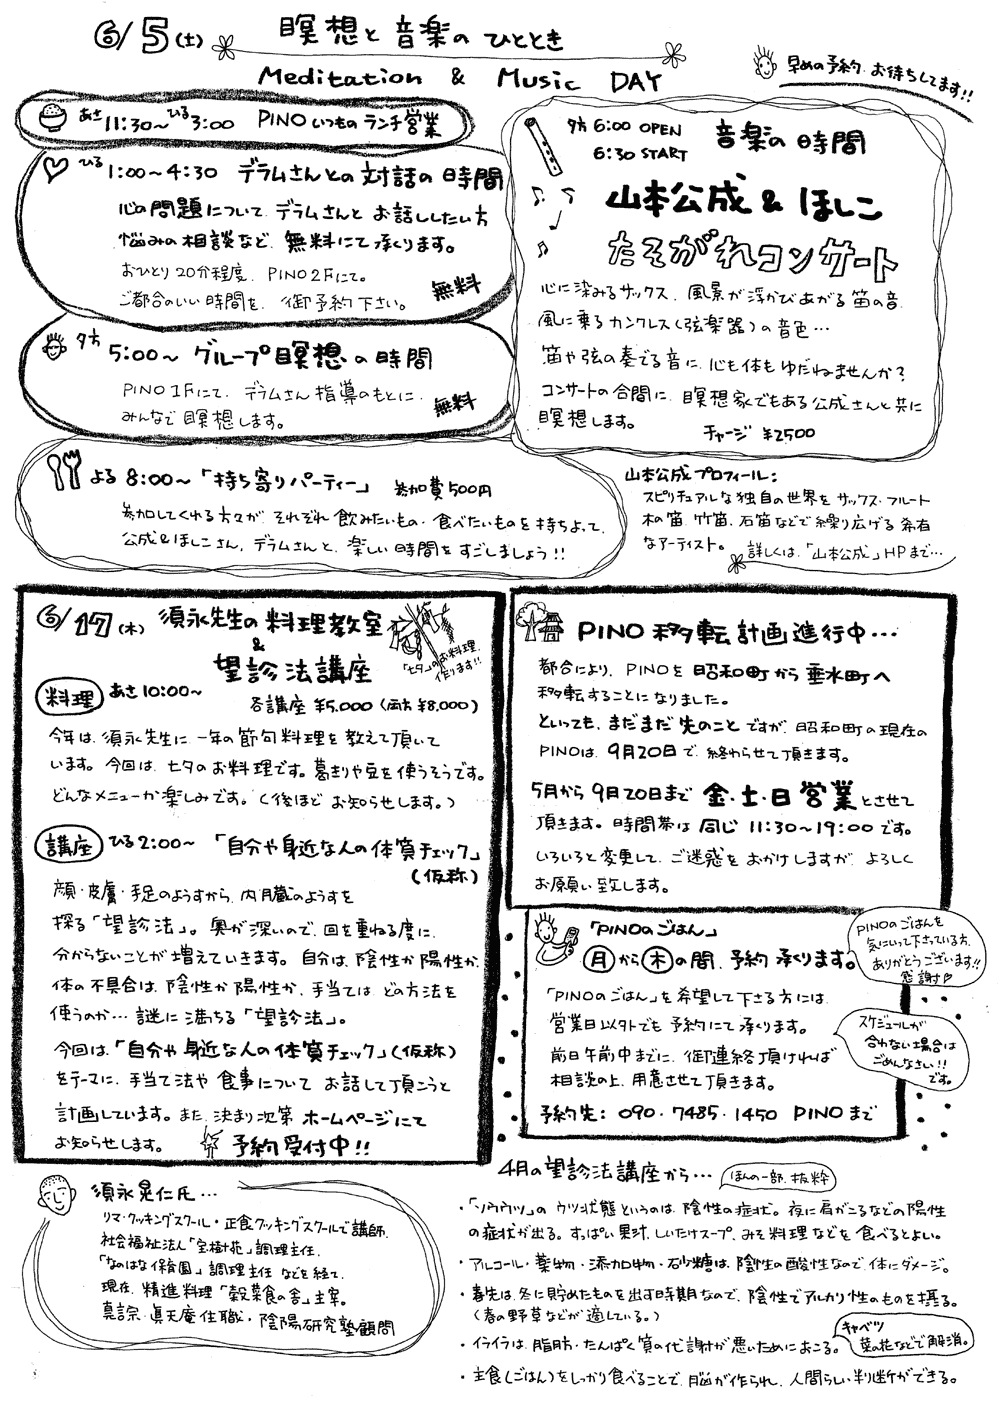 6/5(土) 瞑想と音楽のひととき
Meditation & Music DAY
早めの予約、お待ちしてます!!
あさ11:30〜ひる3:00 PINOいつものランチ営業
ひる1:00〜4:30 デラムさんとの対話の時間
心の問題について、デラムさんと お話ししたい方
悩みの相談など、無料にて承ります。
おひとり20分程度、PINO2Fにて。
ご都合のいい時間を、御予約下さい。
無料
夕方5:00〜 グループ瞑想の時間
PINO1Fにて、デラムさん指導のもとに、
みんなで瞑想します。
無料
よる8:00〜「持ち寄りパーティー」 参加費500円
参加してくれる方々が、それぞれ飲みたいもの・食べたいものを持ちよって、
公成&ほしこさん、デラムさんと、楽しい時間をすごしましょう!!
夕方6:00 OPEN
6:30 START
音楽の時間
山本公成&ほしこ
たそがれコンサート
心に染みるサックス、風景が浮かびあがる笛の音、
風に乗るカンクレス(弦楽器)の音色…
笛や弦の奏でる音に、心も体もゆだねませんか?
コンサートの合間に、瞑想家でもある公成さんと共に
瞑想します。
チャージ ¥2500
山本公成プロフィール:
スピリチュアルな独自の世界を、サックス・フルート
木の笛、竹笛、石笛などで繰り広げる希有
なアーティスト。
詳しくは、「山本公成」HPまで…
6/17(木) 須永先生の料理教室
&
望診法講座
「七夕」のお料理、
作ります!!
料理 あさ10:00〜
各講座 ¥5,000(両方¥8,000)
今年は、須永先生に、一年の節句料理を教えて頂いて
います。今回は、七夕のお料理です。葛きりや豆を使うそうです。
どんなメニューか楽しみです。(後ほど お知らせします。)
講座 ひる2:00〜 「自分や身近な人の体質チェック」
(仮称)
顔・皮膚・手足のようすから、内臓のようすを
探る「望診法」。奥が深いので、回を重ねる度に、
分からないことが増えていきます。自分は、陰性か陽性か、
体の不具合は、陰性か陽性か、手当ては、どの方法を
使うのか…謎に満ちる「望診法」。
今回は、「自分や身近な人の体質チェック」(仮称)
をテーマに、手当て法や食事について お話して頂こうと
計画しています。また、決まり次第 ホームページにて
お知らせします。
予約受付中!!
PINO移転計画進行中…
都合により、PINOを昭和町から垂水町へ
移転することになりました。
といっても、まだまだ先のことですが、昭和町の現在の
PINOは、9月20日で、終わらせて頂きます。
5月から9月20日まで 金・土・日営業とさせて
頂きます。時間帯は同じ 11:30〜19:00です。
いろいろと変更して、ご迷惑をおかけしますが、よろしく
お願い致します。
「PINOのごはん」
月から木の間、予約承ります。
PINOのごはんを
気にいって下さっている方、
ありがとうございます!!
感謝♡
「PINOのごはん」を希望して下さる方には、
営業日以外でも予約にて承ります。
前日午前中までに、御連絡頂ければ
相談の上、用意させて頂きます。
スケジュールが
合わない場合は
ごめんなさい!!
です。
予約先: 090・7485・1450 PINOまで
須永晃仁氏…
リマ・クッキングスクール・正食クッキングスクールで講師、
社会福祉法人「宝樹苑」調理主任、
「なのはな保育園」調理主任などを経て、
現在、精進料理「穀菜食の舎」主宰。
真言宗・眞天庵住職・陰陽研究塾顧問
4月の望診法講座から… ほんの一部、抜粋
・「ソウウツ」のウツ状態というのは、陰性の症状。夜に肩がこるなどの陽性
の症状が出る。すっぱい果汁、しいたけスープ、みそ料理などを食べるとよい。
・アルコール・薬物・添加物・砂糖は、陰性の酸性なので、体にダメージ。
・春先は、冬に貯めたものを出す時期なので、陰性でアルカリ性のものを摂る。
(春の野草などが適している。)
・イライラは、脂肪・たんぱく質の代謝が悪いためにおこる。
キャベツ
菜の花などで解消。
・主食(ごはん)をしっかり食べることで、脳が作られ、人間らしい判断ができる。